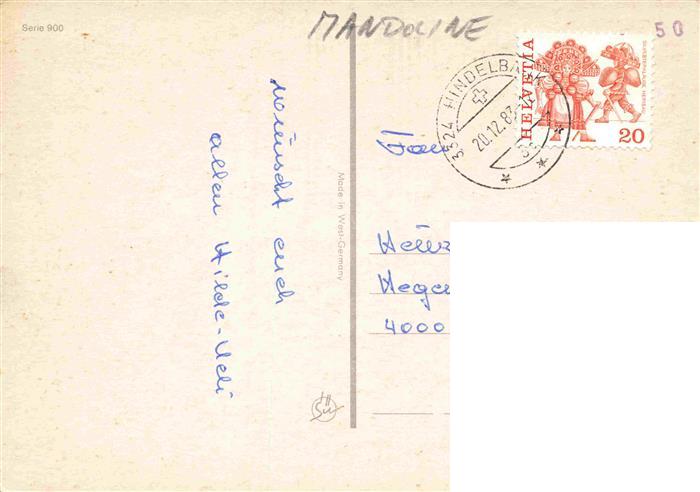 Serie 900
MANDOLINE
50
HELVETIA
20
3324 HINDELBANK
20.12.83
wünscht euch
allen Hilde-Ueli
Made in West-Germany
Fam
Heinz
Hege
4000